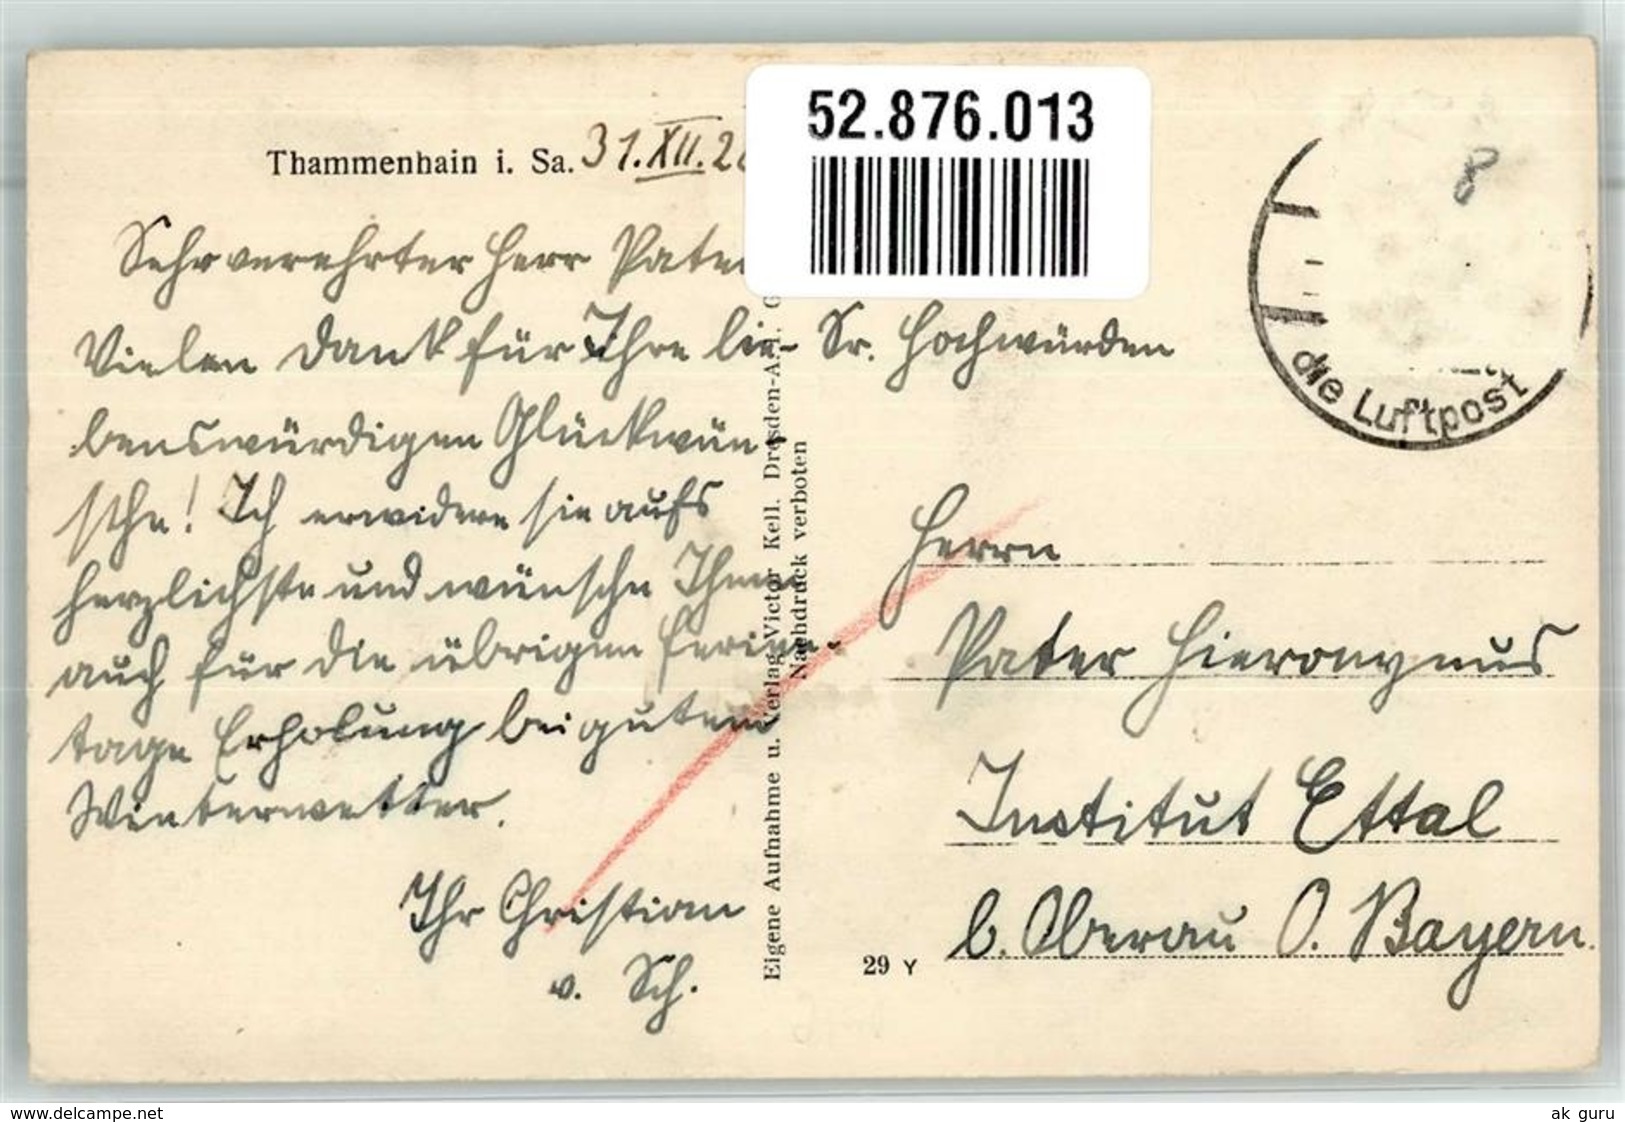 52.876.013
Thammenhain i. Sa. 31.XII.2
Sehr verehrter Herr Pate
Vielen Dank für Ihre lie-
benswürdigen Glückwün-
sche! Ich erwidere sie aufs
herzlichste und wünsche Ihnen
auch für die übrigen Ferien-
tage Erholung bei gutem
Winterwetter.
Ihr Christian
v. Sch.
Eigene Aufnahme u. Verlag Victor Kell. Dresden-A.1.
Nachdruck verboten
29 Y
8
die Luftpost
Sr. Hochwürden
Herrn
Pater Hieronymus
Institut Ettal
b. Oberau O. Bayern.
www.delcampe.net
ak_guru